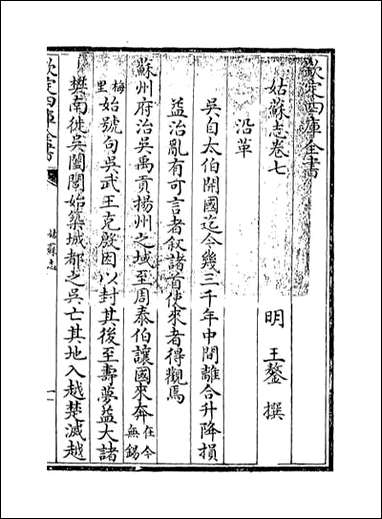 欽定四庫全書
姑蘇志卷七　明　王鏊　撰
沿革
吳自太伯開國迄今幾三千年中間離合升降損
益治亂有可言者叙諸首使來者得觀焉
蘇州府治吳禹貢揚州之域至周泰伯讓國來奔在今無錫
梅里始號句吳武王克殷因以封其後至壽夢益大諸
樊南徙吳闔閭始築城都之吳亡其地入越楚滅越
欽定四庫全書
姑蘇志